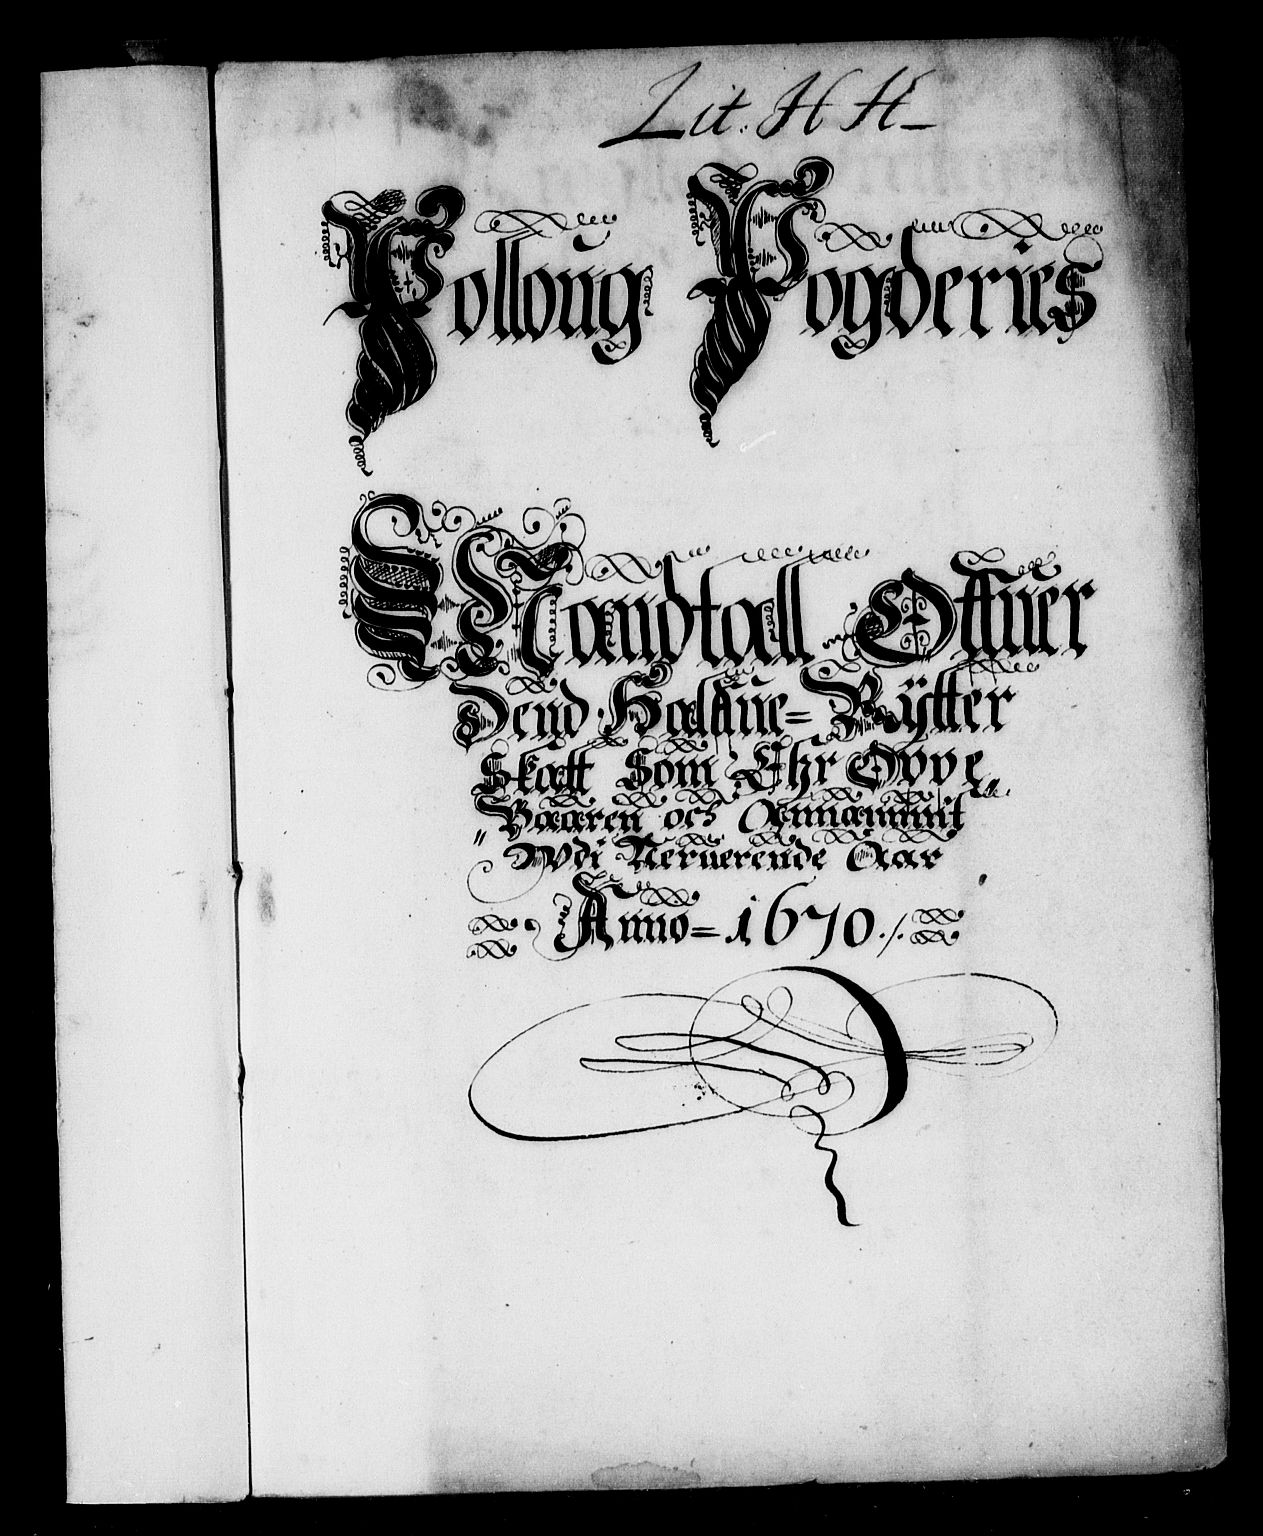 Lit. H H
Folloug Fogderies
Mandtall Offuer
Dend Halfue= Rÿtter
Skatt Som Ehr Oppe
Baaren och Annammit
Wdi Neruerende Aar
Anno= 1670 ./.